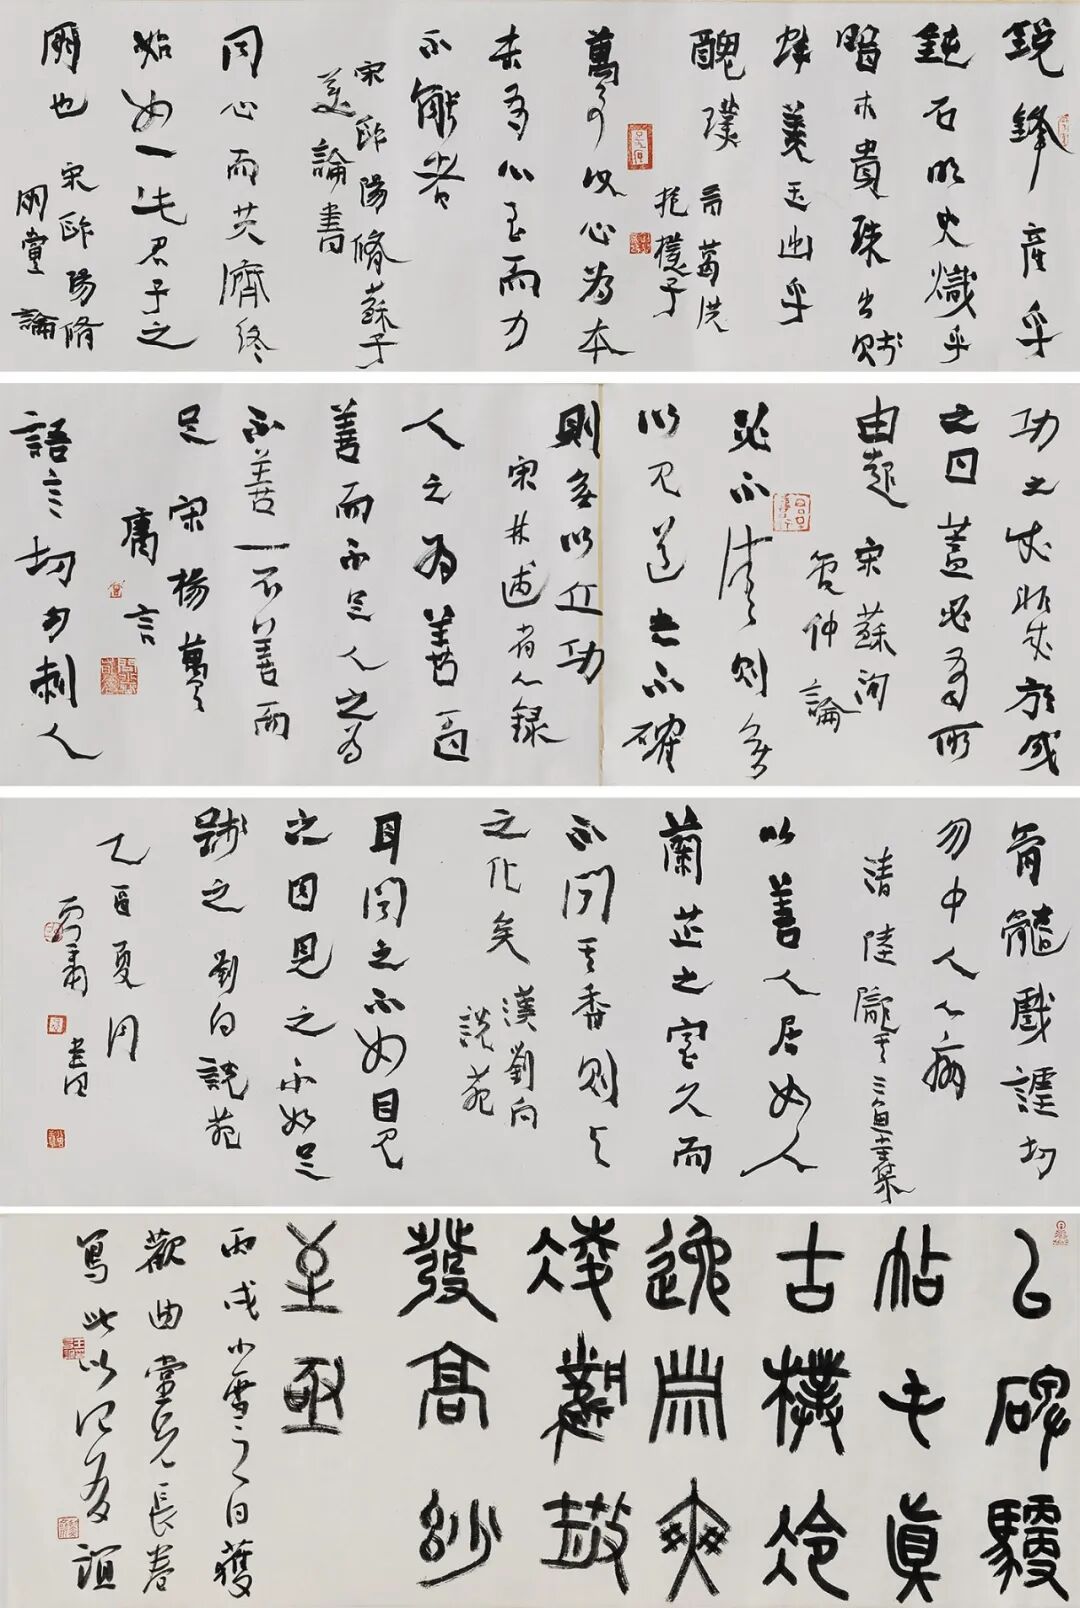 銳鋒產乎
鈍石明火熾乎
闇木貴珠出賤
蚌美玉出乎
醜璞 晉葛洪
抱樸子
萬事以心為本
未有心至而力
不能者
宋歐陽脩蘇子
美論書
同心而共濟終
始如一此君子之
朋也 宋歐陽脩
朋黨論
功之成非成於成
之日蓋必有所
由起 宋蘇洵
管仲論
必不清則無
以見道志不確
則無以立功
宋林逋省心錄
人之為善百
善而不足人之為
不善一不善而
足 宋楊萬里
庸言
語言切勿刺人
骨髓戲謔切
勿中人心病
清陸隴其三魚堂集
以善人居如入
蘭芷之室久而
不聞其香則與
之化矣 漢劉向
說苑
耳聞之不如目見
之目見之不如足
踐之 劉向說苑
乙酉夏月
書
碑騣
帖也真
古樸冷
逸淵爽
發高妙
至極
丙戌小雪之日獲
觀曲堂兄長卷
寫此以記友誼